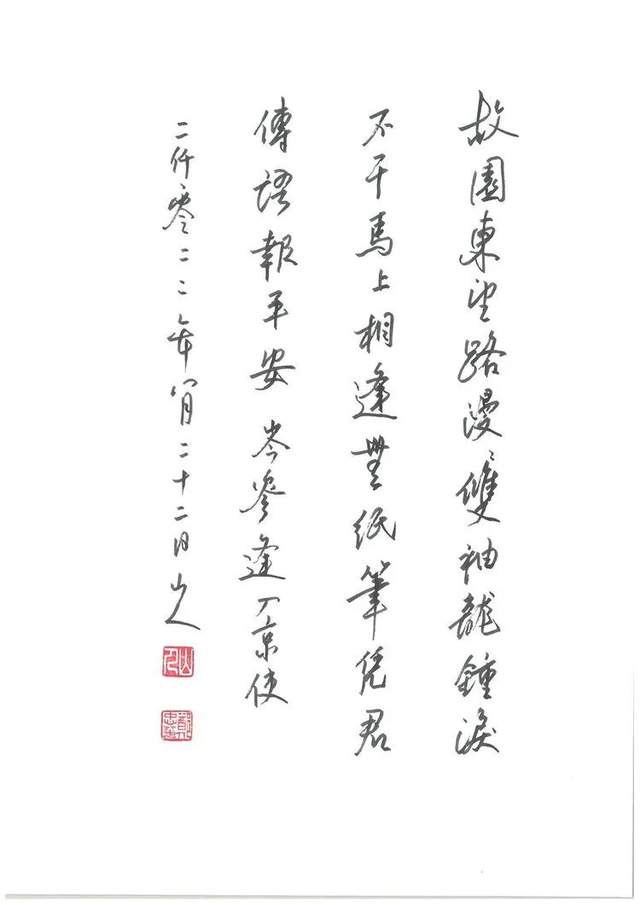 故園東望路漫〻雙袖龍鍾淚
不干馬上相逢無紙筆凭君
傳語報平安 岑參逢入京使
二仟零二二年八月二十二日山人
山人